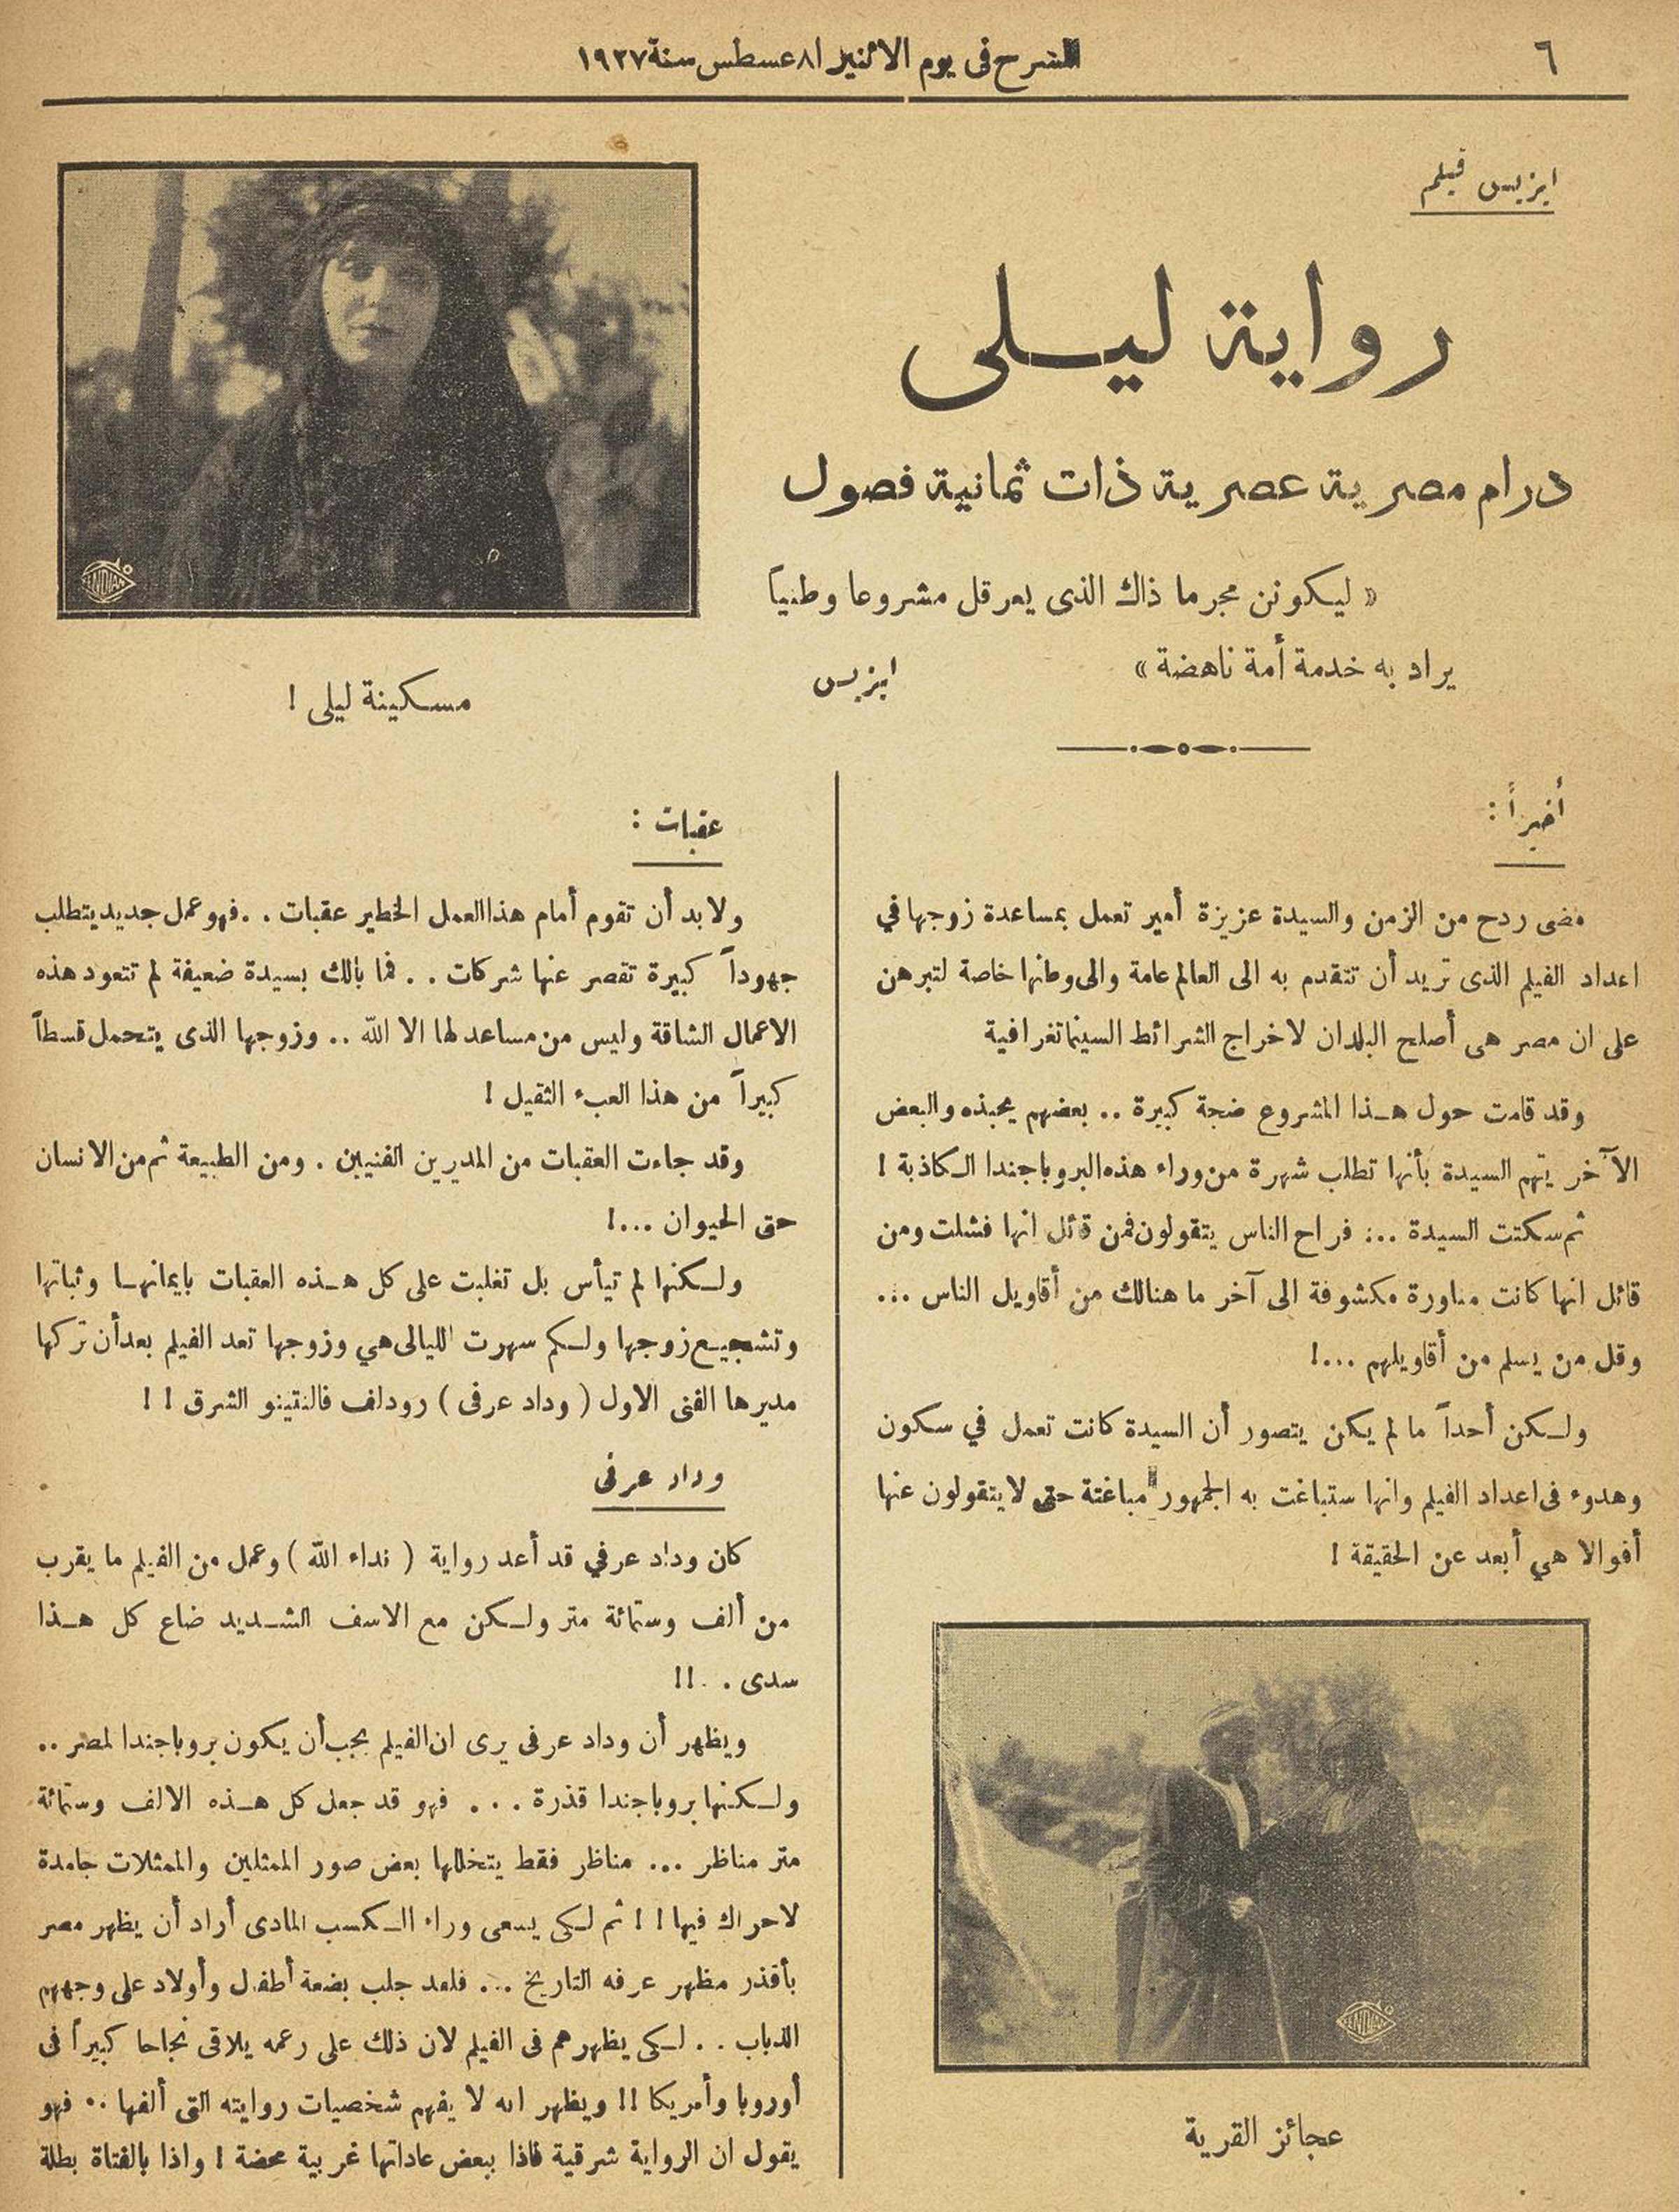 ٦
المسرح فى يوم الاثنين ٨ اغسطس سنة ١٩٢٧
ايزيس فيلم
رواية ليــلى
درام مصرية عصرية ذات ثمانية فصول
« ليكونن مجرما ذاك الذى يعرقل مشروعا وطنياً
يراد به خدمة أمة ناهضة »
ايزيس
FENDIAN
مسكينة ليلى !
أخيراً :
مضى ردح من الزمن والسيدة عزيزة أمير تعمل بمساعدة زوجها في
اعداد الفيلم الذى تريد أن تتقدم به الى العالم عامة والى وطنها خاصة لتبرهن
على ان مصر هى أصلح البلدان لاخراج الشرائط السينماتغرافية
وقد قامت حول هـذا المشروع ضجة كبيرة .. بعضهم يحبذه والبعض
الآخر يتهم السيدة بأنها تطلب شهرة من وراء هذه البروباجندا الكاذبة !
ثم سكتت السيدة ... فراح الناس يتقولون فمن قائل انها فشلت ومن
قائل انها كانت مناورة مكشوفة الى آخر ما هنالك من أقاويل الناس ...
وقل من يسلم من أقاويلهم ...!
ولـكن أحداً ما لم يكن يتصور أن السيدة كانت تعمل في سكون
وهدوء فى اعداد الفيلم وانها ستباغت به الجمهور مباغتة حتى لا يتقولون عنها
أقوالا هي أبعد عن الحقيقة !
FENDIAN
عجائز القرية
عقبات :
ولا بد أن تقوم أمام هذا العمل الخطير عقبات . . فهو عمل جديد يتطلب
جهوداً كبيرة تقصر عنها شركات . . فما بالك بسيدة ضعيفة لم تتعود هذه
الاعمال الشاقة وليس من مساعد لها الا الله .. وزوجها الذى يتحمل قسطاً
كبيراً من هذا العبء الثقيل !
وقد جاءت العقبات من المديرين الفنيين . ومن الطبيعة ثم من الانسان
حتى الحيوان ...!
ولـكنها لم تيأس بل تغلبت على كل هـذه العقبات بايمانهـا وثباتها
وتشجيـع زوجها ولـكم سهرت الليالى هي وزوجها تعد الفيلم بعد أن تركها
مديرها الفنى الاول ( وداد عرفى ) رودلف فالنتينو الشرق ! !
وداد عرفى
كان وداد عرفي قد أعد رواية ( نداء الله ) وعمل من الفيلم ما يقرب
من ألف وستمائة متر ولـكن مع الاسف الشـديد ضاع كل هـذا
سدى . . !!
ويظهر أن وداد عرفى يرى ان الفيلم يجب أن يكون بروباجندا لمصر ..
ولـكنها بروباجندا قذرة . . . فهو قد جعل كل هـذه الالف وستمائة
متر مناظر ... مناظر فقط يتخللها بعض صور الممثلين والممثلات جامدة
لا حراك فيها ! ! ثم لـكى يسعى وراء الـكسب المادى أراد أن يظهر مصر
بأقذر مظهر عرفه التاريخ ... فلقد جلب بضعة أطفال وأولاد على وجههم
الذباب . . لـكى يظهرهم فى الفيلم لان ذلك على زعمه يلاقى نجاحا كبيراً فى
أوروبا وأمريكا !! ويظهر انه لا يفهم شخصيات روايته التى ألفها .. فهو
يقول ان الرواية شرقية فاذا ببعض عاداتها غربية محضة ! واذا بالفتاة بطلة